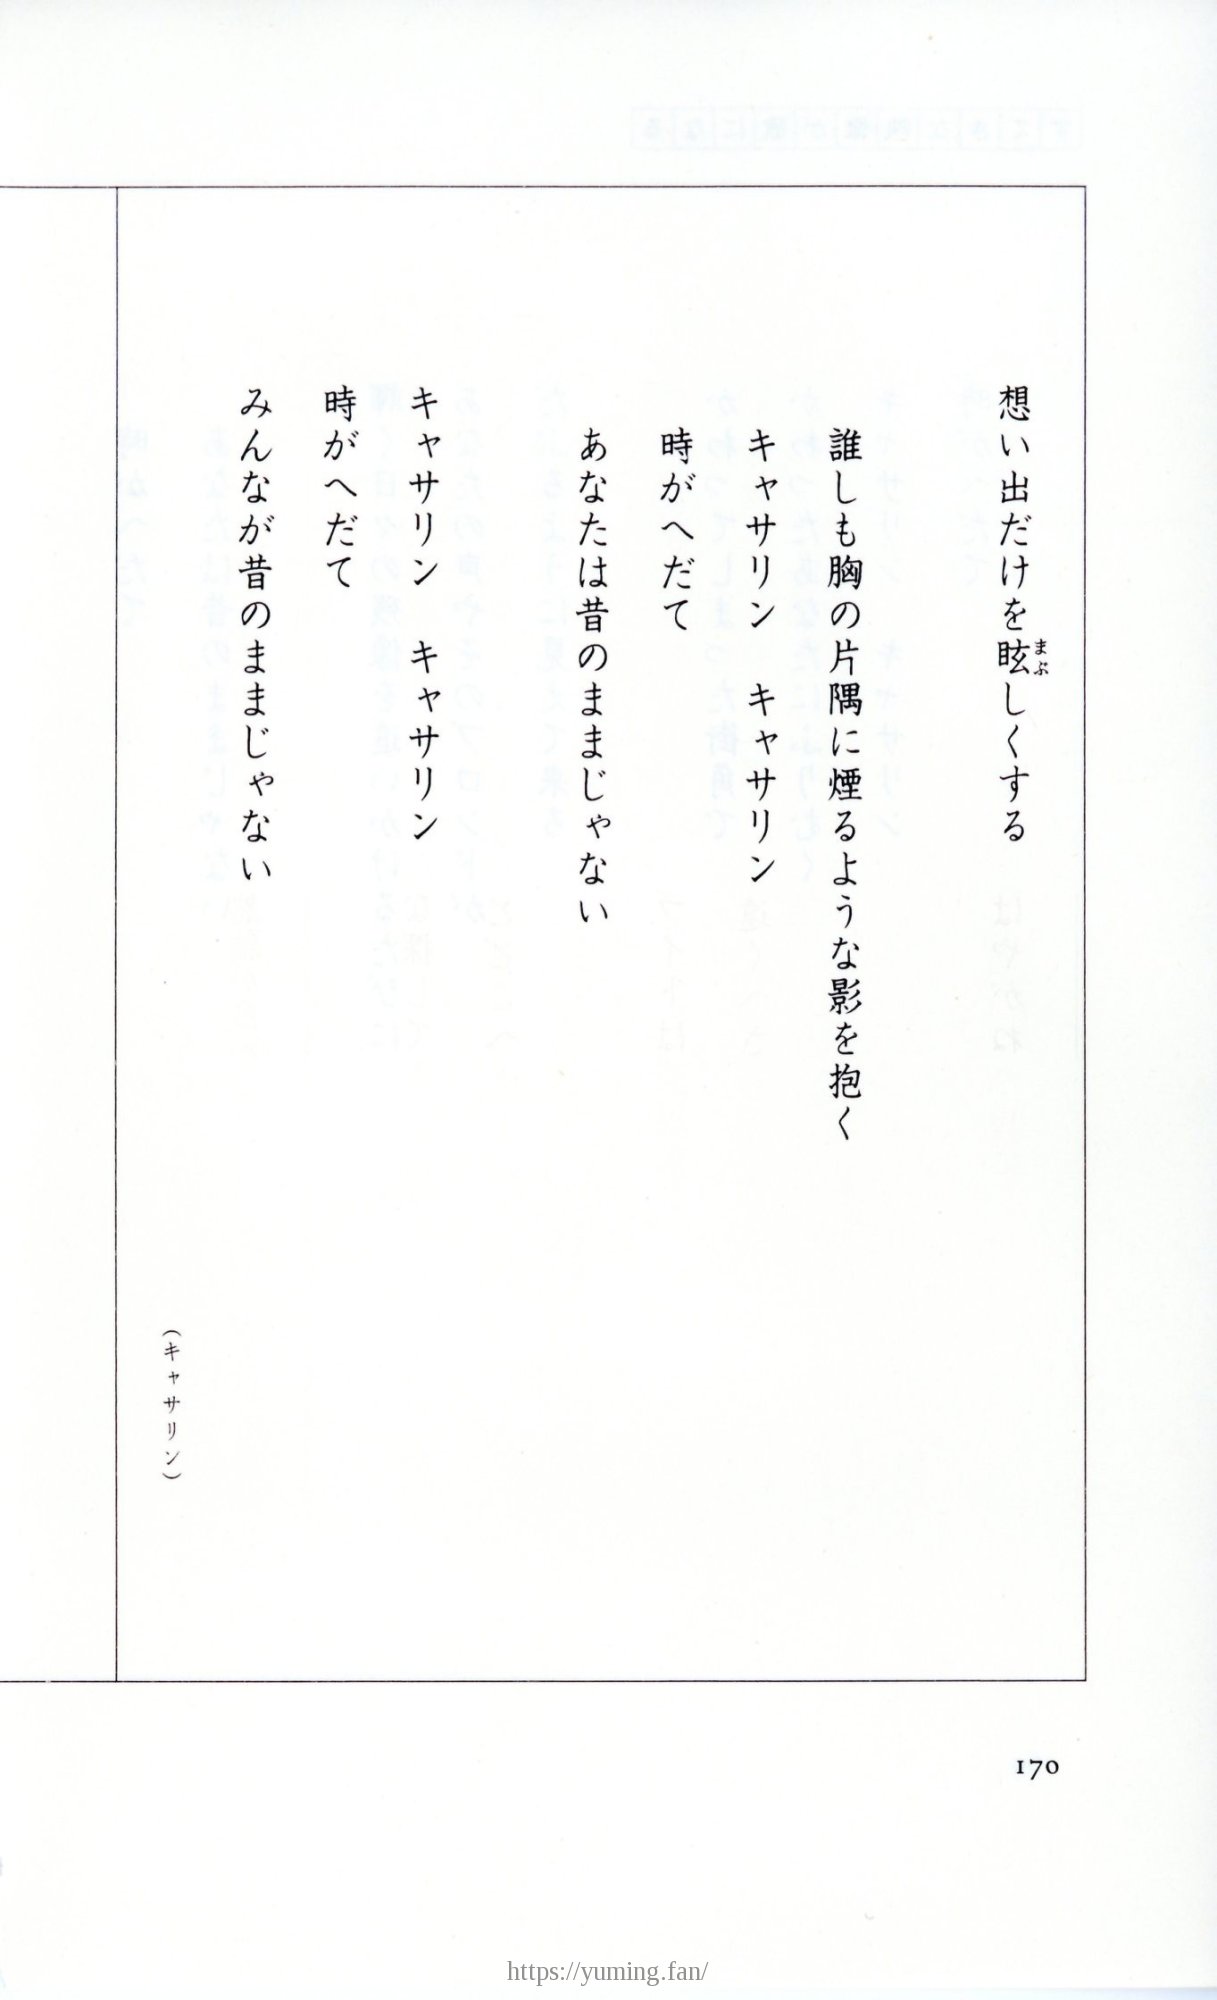 想い出だけを眩しくする
まぶ
誰しも胸の片隅に煙るような影を抱く
キャサリン　キャサリン
時がへだて
あなたは昔のままじゃない
キャサリン　キャサリン
時がへだて
みんなが昔のままじゃない
（キャサリン）
170
https://yuming.fan/